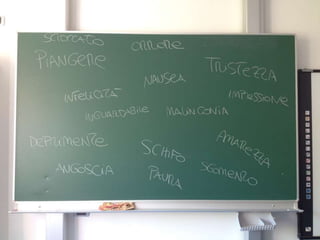 ORRORE
PIANGERE
TRISTEZZA
NAUSEA
INFELICITÀ
IMPRESSIONE
INGUARDABILE
MALINCONIA
DEPRIMENTE
AMAREZZA
SCHIFO
ANGOSCIA
PAURA
SGOMENTO